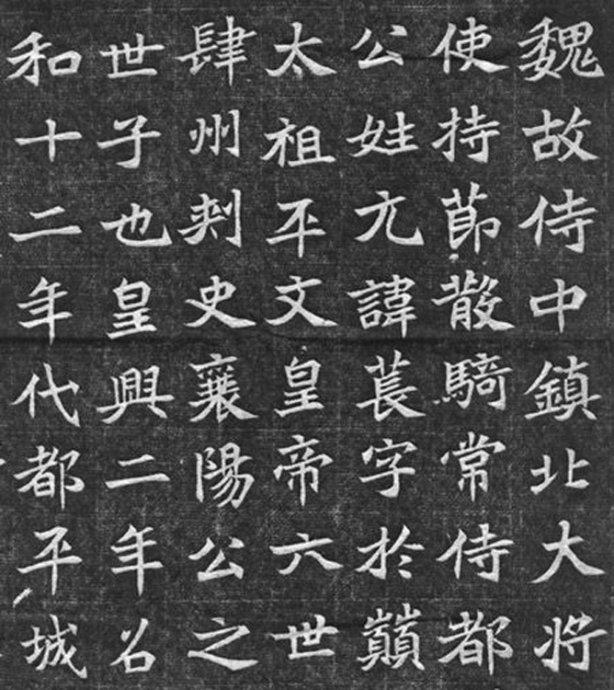 魏故侍中鎮北大将
使持莭散騎常侍都
公姓元諱萇字於巔
太祖平文皇帝六世
肆州刾史襄陽公之
世子也皇興二年召
和十二年代都平城